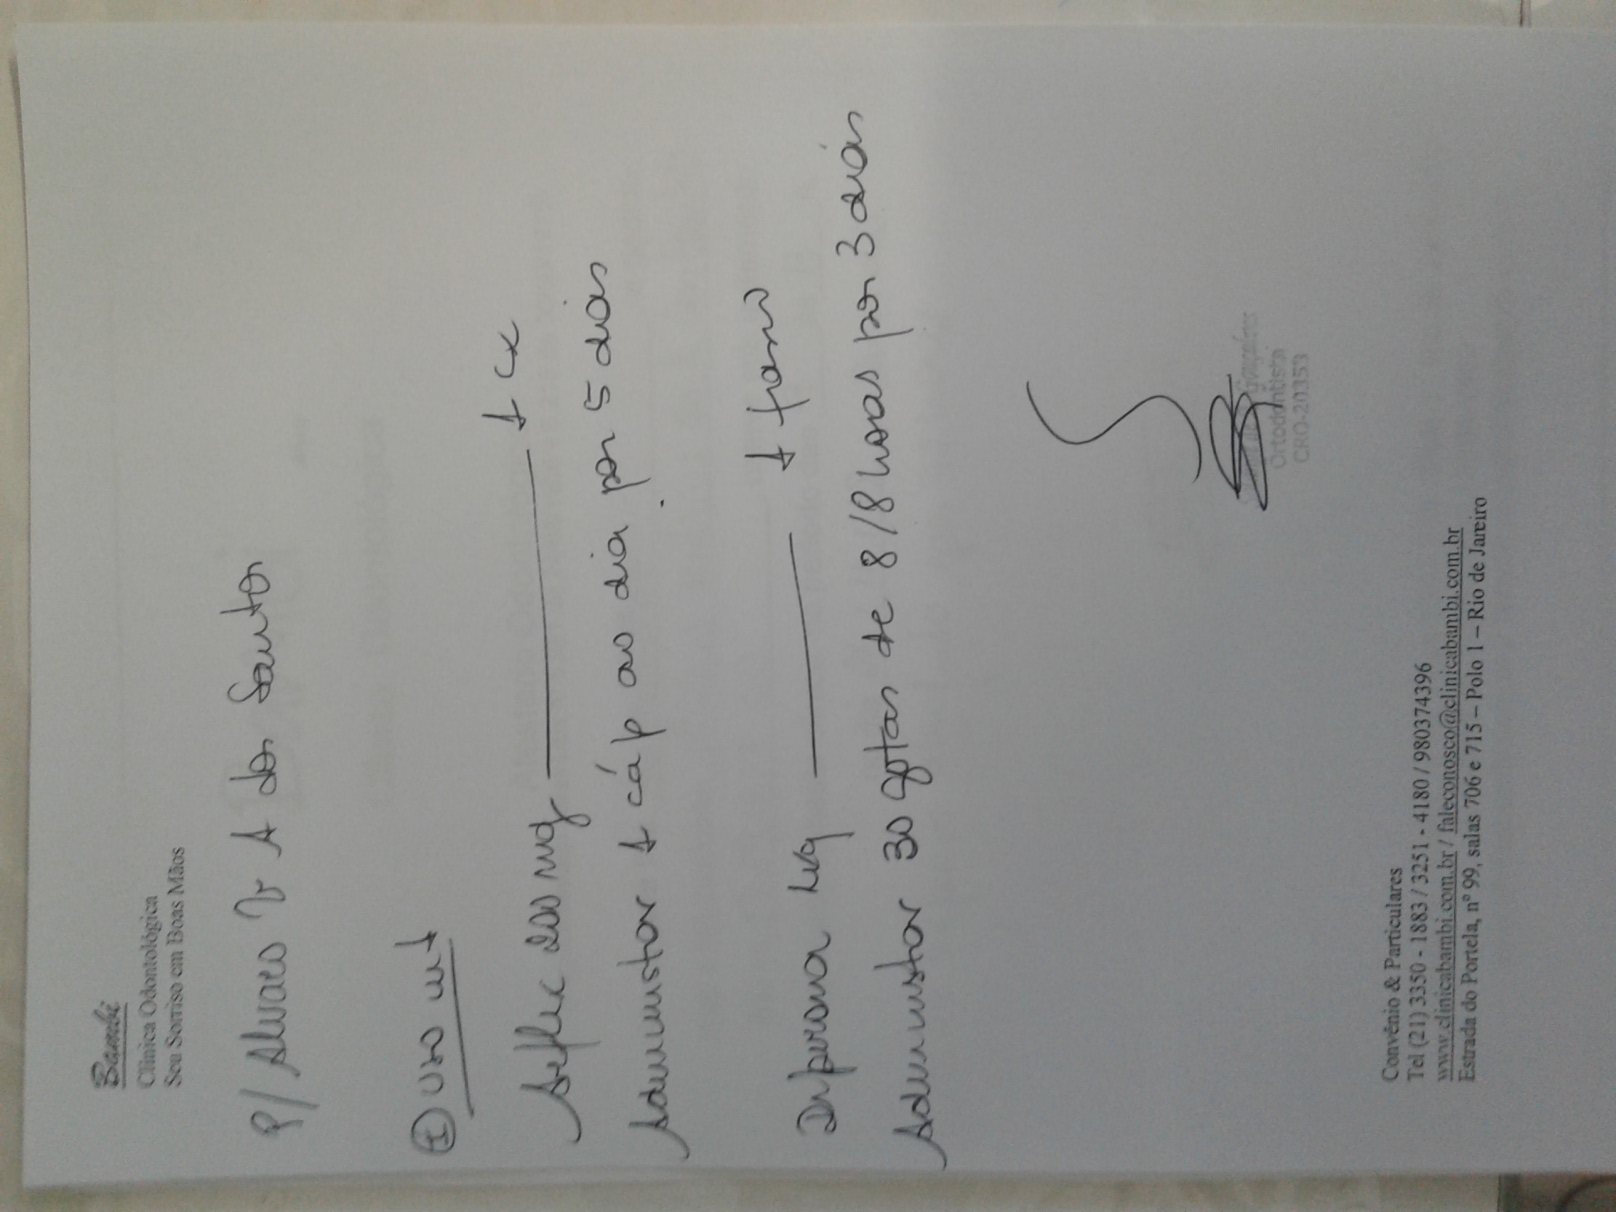 Bambi
Clínica Odontológica
Seu Sorriso em Boas Mãos
P/ Alvaro V A dos Santos
① Uso int
Arflex 200 mg ——— 1 cx
Administrar 1 cáp ao dia por 5 dias
Dipirona Liq ——— 1 frasco
Administrar 30 gotas de 8/8 horas por 3 dias
Ortodontista
CRO-20353
Convênio & Particulares
Tel (21) 3350 - 1883 / 3251 - 4180 / 980374396
www.clinicabambi.com.br / faleconosco@clinicabambi.com.br
Estrada do Portela, nº 99, salas 706 e 715 – Polo 1 – Rio de Janeiro